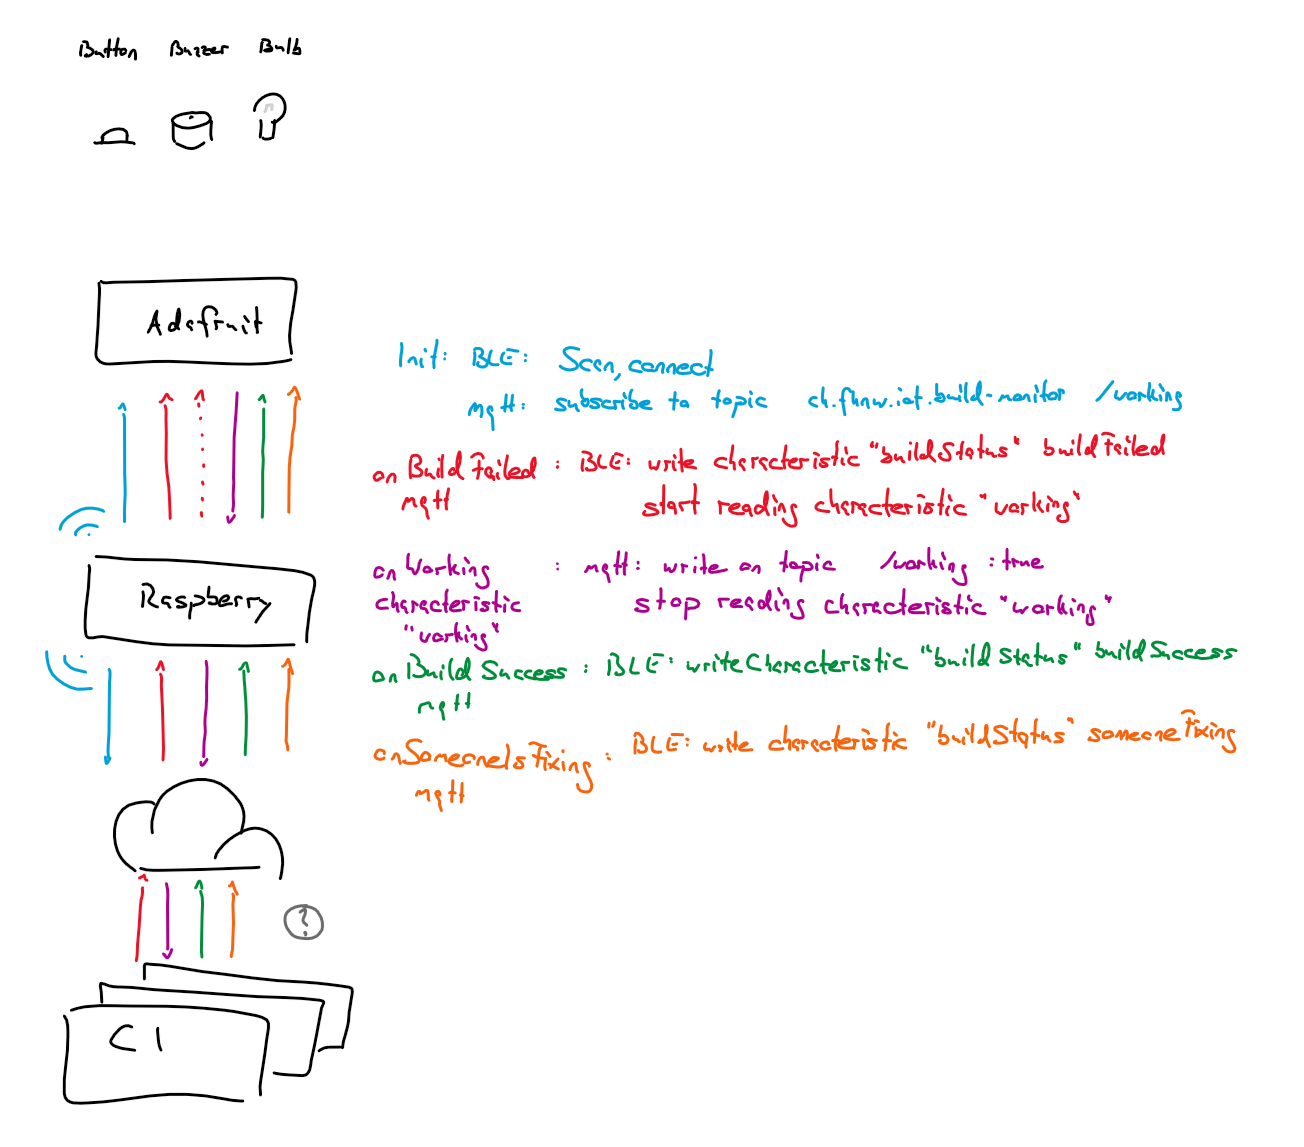 Button Buzzer Bulb
Adafruit
Init: BLE: Scan, connect
mqtt: subscribe to topic ch.fhnw.iot.build-monitor /working
onBuildFailed : BLE: write characteristic "buildStatus" buildFailed
mqtt start reading characteristic "working"
Raspberry
onWorking : mqtt: write on topic /working : true
characteristic stop reading characteristic "working"
"working"
onBuildSuccess : BLE: writeCharacteristic "buildStatus" buildSuccess
mqtt
onSomeoneIsFixing : BLE: write characteristic "buildStatus" someoneFixing
mqtt
?
CI